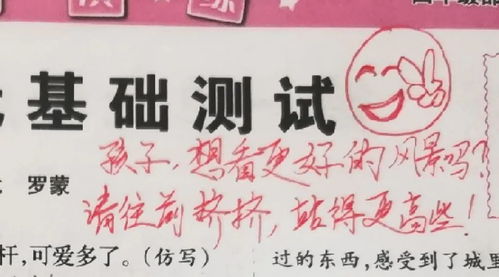 练
基础测试
孩子,想看更好的风景吗?
罗蒙
请往前挤挤,站得更高些!
杆,可爱多了。(仿写)
过的东西,感受到了城里